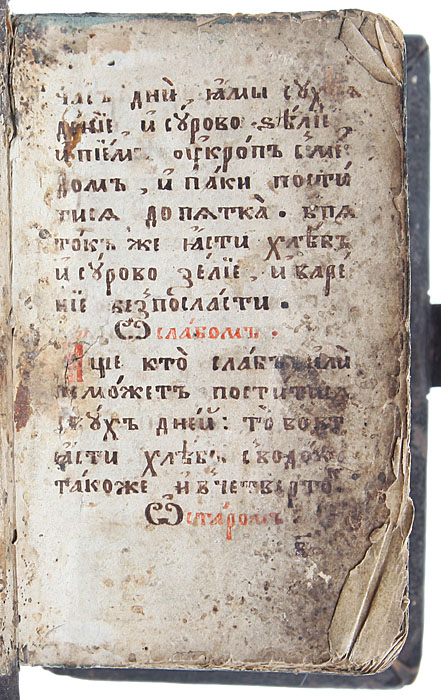 часъ днѝ, ꙗ҆мы сꙋхоꙗ
дꙋнїе, и҆ сꙋрово ѕѣлїе,
и҆ пїемъ ᲂу҆кропъ с ме
домъ, и҆ па́ки пости́
тисѧ до пѧтка̀. в пѧ
токъ же ꙗ҆сти хлѣбъ
и҆ сꙋрово зелїе, и҆ варе
нїе без̾ посласти.
Ѡ҆ слабомъ.
А҆ще кто̀ слабъ и҆лѝ
не мо́жетъ поститисѧ
двꙋхъ дней: то во вт
ꙗ҆сти хлѣбъ с водою
такоже и҆ в четверто.
Ѡ҆ старомъ.